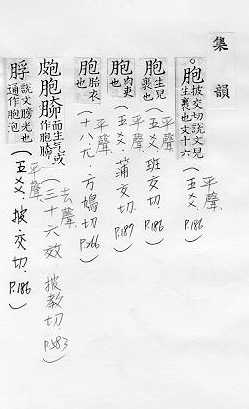 集韻
。胞披交切說文兒生裹也文十六(平聲五爻 P.186
胞生兒裹也(平聲五爻 班交切 P.186
胞肉吏也(平聲五爻.蒲交切.P.187
胞胎衣也(十八尤.方鳩切 P.266
皰胞 面生气或作胞(去聲三十六效 披教切 P.583)
脬說文膀光也通作胞泡(平聲五爻.披.交切.P.186